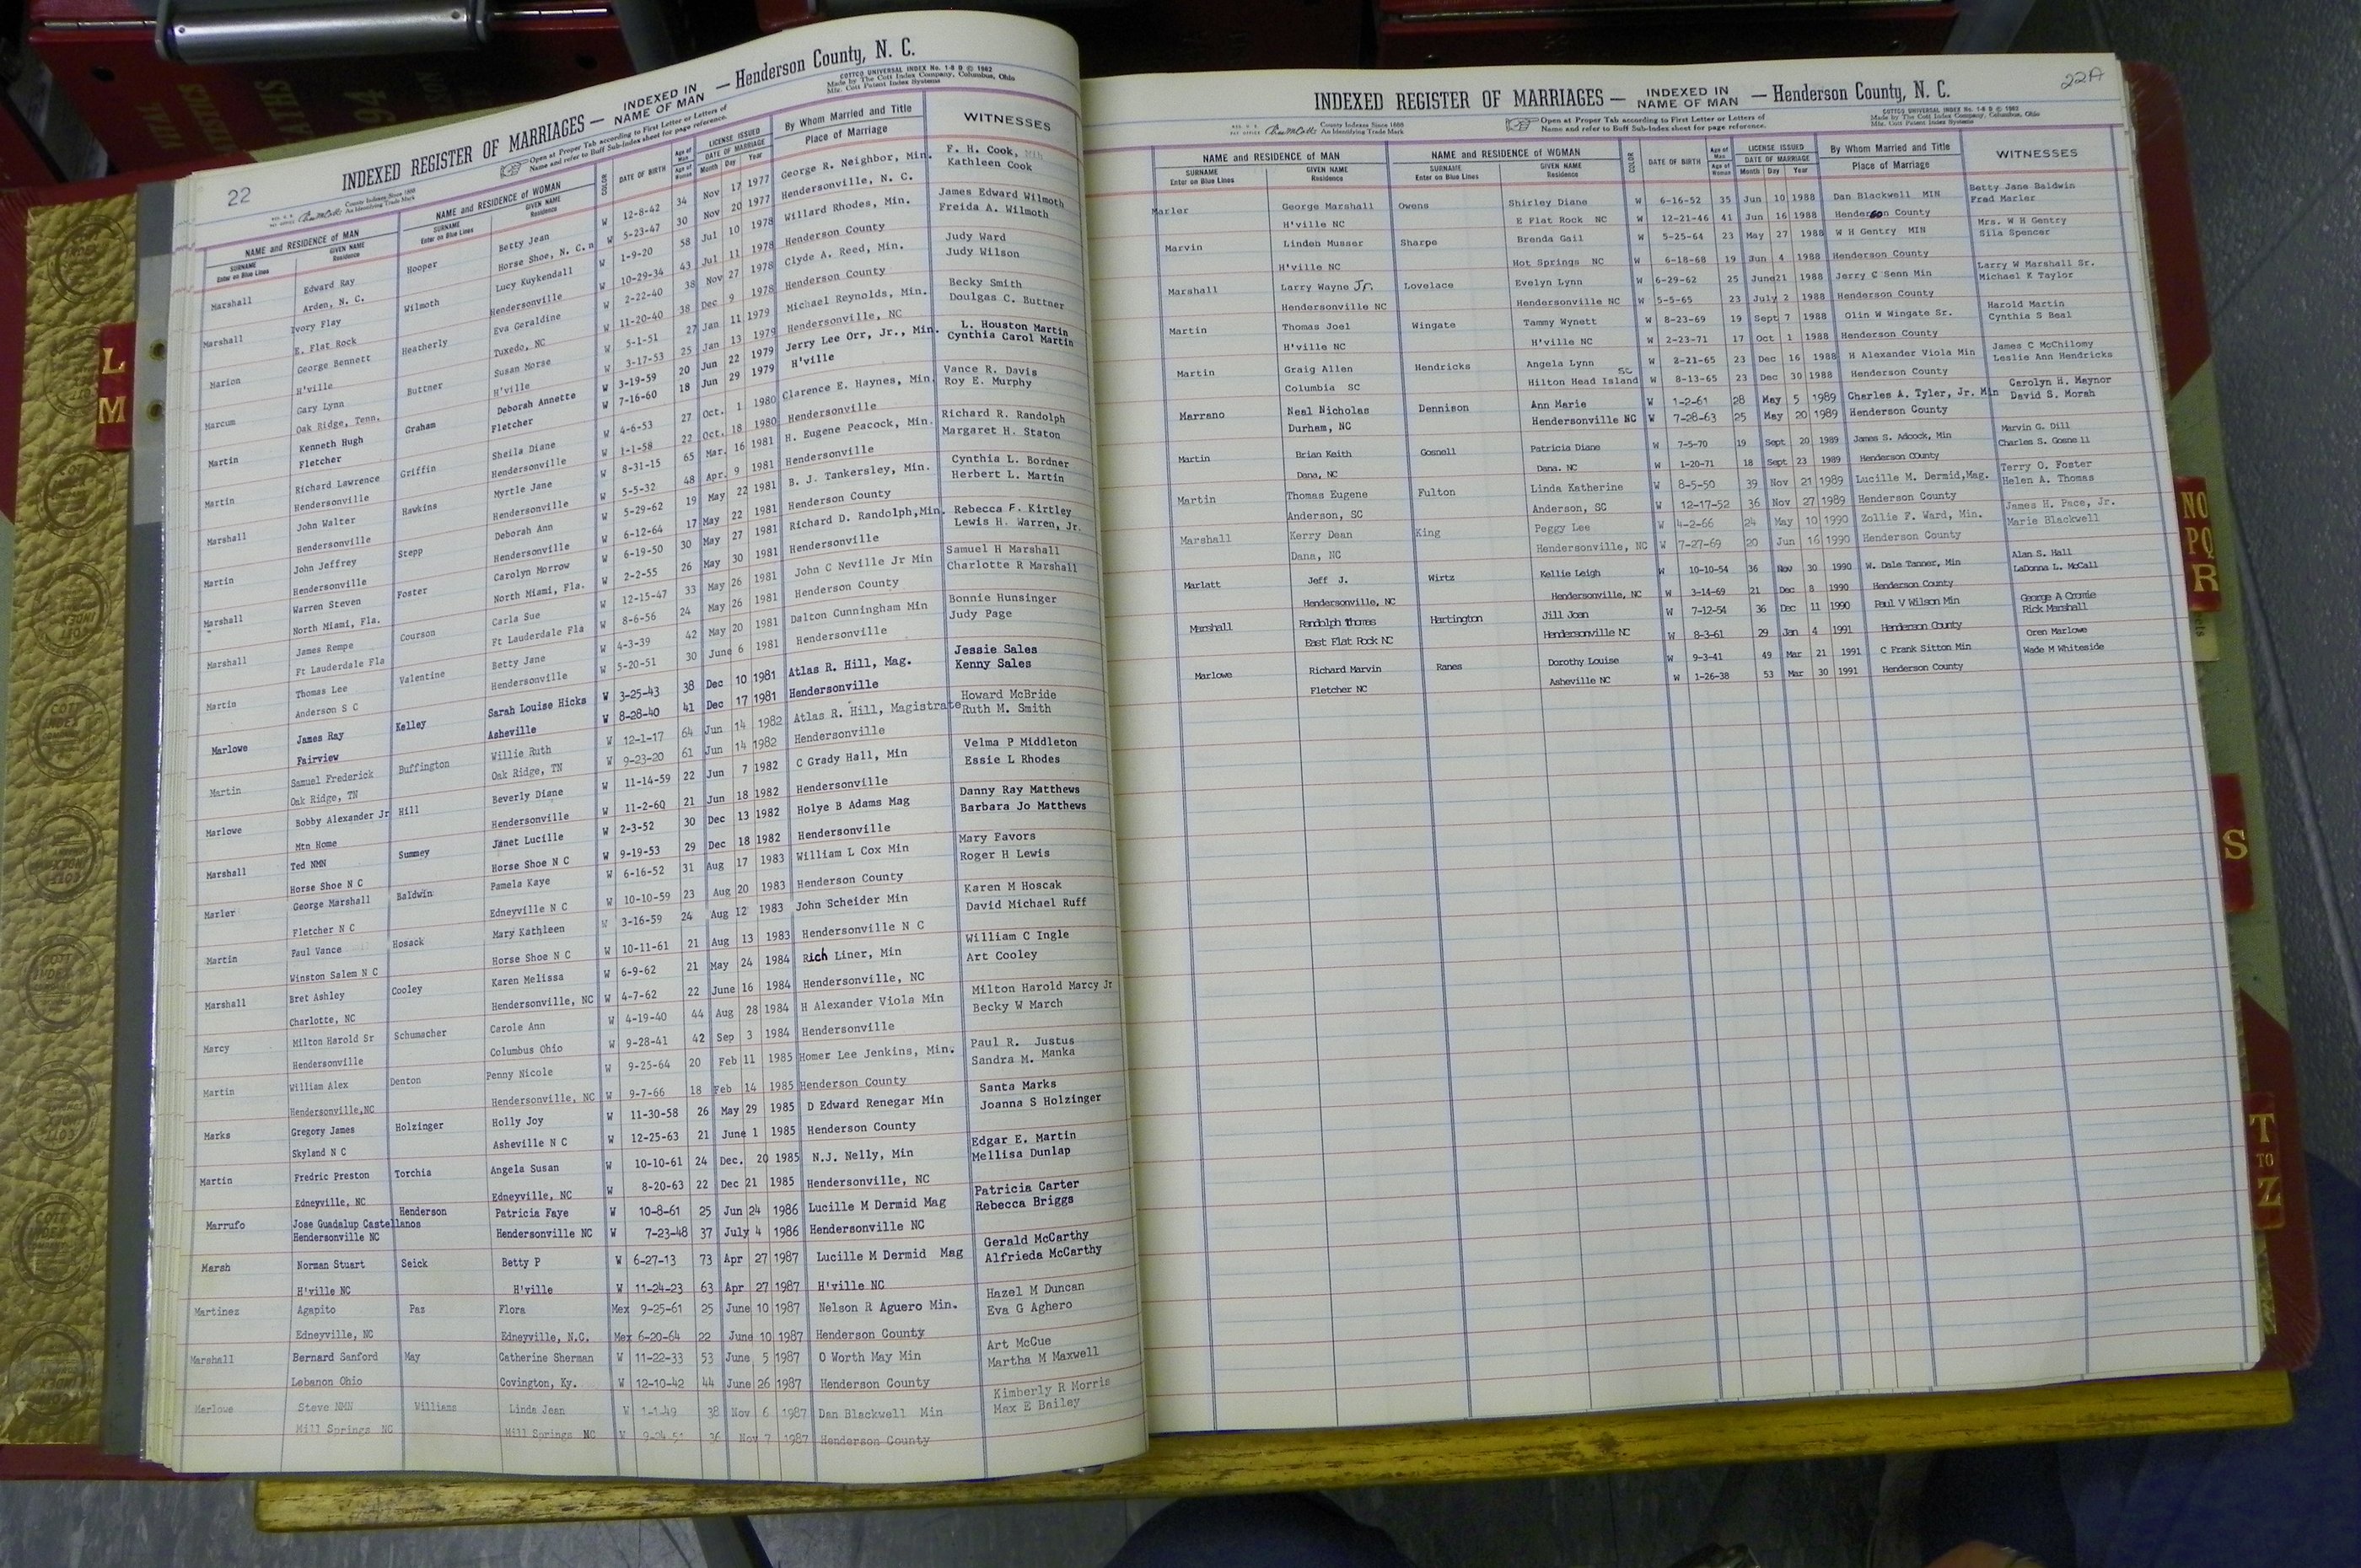 22
INDEXED REGISTER OF MARRIAGES — INDEXED IN NAME OF MAN — Henderson County, N. C.
County Indexes Since 1888
An Identifying Trade Mark
Open at Proper Tab according to First Letter or Letters of
Name and refer to Buff Sub-Index sheet for page reference.
COTTCO UNIVERSAL INDEX No. 1-8 D © 1962
Made by The Cott Index Company, Columbus, Ohio
Mfg. Cott Patent Index Systems
NAME and RESIDENCE OF MAN NAME and RESIDENCE OF WOMAN COLOR DATE OF BIRTH Age of Man LICENSE ISSUED By Whom Married and Title WITNESSES
SURNAME GIVEN NAME SURNAME GIVEN NAME Age of Woman DATE OF MARRIAGE Place of Marriage
Enter on Blue Lines Residence Enter on Blue Lines Residence Month Day Year
Marshall Edward Ray Hooper Betty Jean W 12-8-42 34 Nov 17 1977 George R. Neighbor, Min. F. H. Cook,
Arden, N. C. Horse Shoe, N. C. W 5-23-47 30 Nov 20 1977 Hendersonville, N. C. Kathleen Cook
Marshall Ivory Flay Wilmoth Lucy Kuykendall W 1-9-20 58 Jul 10 1978 Willard Rhodes, Min. James Edward Wilmoth
E. Flat Rock Hendersonville W 10-29-34 43 Jul 11 1978 Henderson County Freida A. Wilmoth
Marion George Bennett Heatherly Eva Geraldine W 2-22-40 38 Nov 27 1978 Clyde A. Reed, Min. Judy Ward
H'ville Tuxedo, NC W 11-20-40 38 Dec 9 1978 Henderson County Judy Wilson
Marcum Gary Lynn Buttner Susan Morse W 5-1-51 27 Jan 11 1979 Michael Reynolds, Min. Becky Smith
Oak Ridge, Tenn. H'ville W 3-17-53 25 Jan 13 1979 Hendersonville, NC Doulgas C. Buttner
Martin Kenneth Hugh Graham Deborah Annette W 3-19-59 20 Jun 22 1979 Jerry Lee Orr, Jr., Min. L. Houston Martin
Fletcher Fletcher W 7-16-60 18 Jun 29 1979 H'ville Cynthia Carol Martin
Martin Richard Lawrence Griffin Sheila Diane W 4-6-53 27 Oct. 1 1980 Clarence E. Haynes, Min. Vance R. Davis
Hendersonville Hendersonville W 1-1-58 22 Oct. 18 1980 Hendersonville Roy E. Murphy
Marshall John Walter Hawkins Myrtle Jane W 8-31-15 65 Mar. 16 1981 H. Eugene Peacock, Min. Richard R. Randolph
Hendersonville Hendersonville W 5-5-32 48 Apr. 9 1981 Hendersonville Margaret H. Staton
Martin John Jeffrey Stepp Deborah Ann W 5-29-62 19 May 22 1981 B. J. Tankersley, Min. Cynthia L. Bordner
Hendersonville Hendersonville W 6-12-64 17 May 22 1981 Henderson County Herbert L. Martin
Marshall Warren Steven Foster Carolyn Morrow W 6-19-50 30 May 27 1981 Richard D. Randolph, Min. Rebecca F. Kirtley
North Miami, Fla. North Miami, Fla. W 2-2-55 26 May 30 1981 Hendersonville Lewis H. Warren, Jr.
Marshall James Rempe Courson Carla Sue W 12-15-47 33 May 26 1981 John C Neville Jr Min Samuel H Marshall
Ft Lauderdale Fla Ft Lauderdale Fla W 8-6-56 24 May 26 1981 Henderson County Charlotte R Marshall
Martin Thomas Lee Valentine Betty Jane W 4-3-39 42 May 20 1981 Dalton Cunningham Min Bonnie Hunsinger
Anderson S C Hendersonville W 5-20-51 30 June 6 1981 Hendersonville Judy Page
Marlowe James Ray Kelley Sarah Louise Hicks W 3-25-43 38 Dec 10 1981 Atlas R. Hill, Mag. Jessie Sales
Fairview Asheville W 8-28-40 41 Dec 17 1981 Hendersonville Kenny Sales
Martin Samuel Frederick Buffington Willie Ruth W 12-1-17 64 Jun 14 1982 Atlas R. Hill, Magistrate Howard McBride
Oak Ridge, TN Oak Ridge, TN W 9-23-20 61 Jun 14 1982 Hendersonville Ruth M. Smith
Marlowe Bobby Alexander Jr Hill Beverly Diane W 11-14-59 22 Jun 7 1982 C Grady Hall, Min Velma P Middleton
Mtn Home Hendersonville W 11-2-60 21 Jun 18 1982 Hendersonville Essie L Rhodes
Marshall Ted NMN Summey Janet Lucille W 2-3-52 30 Dec 13 1982 Holye B Adams Mag Danny Ray Matthews
Horse Shoe N C Horse Shoe N C W 9-19-53 29 Dec 18 1982 Hendersonville Barbara Jo Matthews
Marler George Marshall Baldwin Pamela Kaye W 6-16-52 31 Aug 17 1983 William L Cox Min Mary Favors
Fletcher N C Edneyville N C W 10-10-59 23 Aug 20 1983 Henderson County Roger H Lewis
Martin Paul Vance Hosack Mary Kathleen W 3-16-59 24 Aug 12 1983 John Scheider Min Karen M Hoscak
Winston Salem N C Horse Shoe N C W 10-11-61 21 Aug 13 1983 Hendersonville N C David Michael Ruff
Marshall Bret Ashley Cooley Karen Melissa W 6-9-62 21 May 24 1984 Rich Liner, Min William C Ingle
Charlotte, NC Hendersonville, NC W 4-7-62 22 June 16 1984 Hendersonville, NC Art Cooley
Marcy Milton Harold Sr Schumacher Carole Ann W 4-19-40 44 Aug 28 1984 H Alexander Viola Min Milton Harold Marcy Jr
Hendersonville Columbus Ohio W 9-28-41 42 Sep 3 1984 Hendersonville Becky W March
Martin William Alex Denton Penny Nicole W 9-25-64 20 Feb 11 1985 Homer Lee Jenkins, Min. Paul R. Justus
Hendersonville,NC Hendersonville, NC W 9-7-66 18 Feb 14 1985 Henderson County Sandra M. Manka
Marks Gregory James Holzinger Holly Joy W 11-30-58 26 May 29 1985 D Edward Renegar Min Santa Marks
Skyland N C Asheville N C W 12-25-63 21 June 1 1985 Henderson County Joanna S Holzinger
Martin Fredric Preston Torchia Angela Susan W 10-10-61 24 Dec. 20 1985 N.J. Nelly, Min Edgar E. Martin
Edneyville, NC Edneyville, NC W 8-20-63 22 Dec 21 1985 Hendersonville, NC Mellisa Dunlap
Marrufo Jose Guadalup Castellanos Henderson Patricia Faye W 10-8-61 25 Jun 24 1986 Lucille M Dermid Mag Patricia Carter
Hendersonville NC Hendersonville NC W 7-23-48 37 July 4 1986 Hendersonville NC Rebecca Briggs
Marsh Norman Stuart Seick Betty P W 6-27-13 73 Apr 27 1987 Lucille M Dermid Mag Gerald McCarthy
H'ville NC H'ville W 11-24-23 63 Apr 27 1987 H'ville NC Alfrieda McCarthy
Martinez Agapito Paz Flora Mex 9-25-61 25 June 10 1987 Nelson R Aguero Min. Hazel M Duncan
Edneyville, NC Edneyville, N.C. Mex 6-20-64 22 June 10 1987 Henderson County Eva G Aghero
Marshall Bernard Sanford May Catherine Sherman W 11-22-33 53 June 5 1987 O Worth May Min Art McCue
Lebanon Ohio Covington, Ky. W 12-10-42 44 June 26 1987 Henderson County Martha M Maxwell
Marlowe Steve NMN Williams Linda Jean W 1-1-49 38 Nov 6 1987 Dan Blackwell Min Kimberly R Morris
Mill Springs NC Mill Springs NC W 9-24-51 36 Nov 7 1987 Henderson County Max E Bailey
22A
INDEXED REGISTER OF MARRIAGES — INDEXED IN NAME OF MAN — Henderson County, N. C.
County Indexes Since 1888
An Identifying Trade Mark
Open at Proper Tab according to First Letter or Letters of
Name and refer to Buff Sub-Index sheet for page reference.
COTTCO UNIVERSAL INDEX No. 1-8 D © 1962
Made by The Cott Index Company, Columbus, Ohio
Mfg. Cott Patent Index Systems
NAME and RESIDENCE OF MAN NAME and RESIDENCE OF WOMAN COLOR DATE OF BIRTH Age of Man LICENSE ISSUED By Whom Married and Title WITNESSES
SURNAME GIVEN NAME SURNAME GIVEN NAME Age of Woman DATE OF MARRIAGE Place of Marriage
Enter on Blue Lines Residence Enter on Blue Lines Residence Month Day Year
Marler George Marshall Owens Shirley Diane W 6-16-52 35 Jun 10 1988 Dan Blackwell MIN Betty Jane Baldwin
H'ville NC E Flat Rock NC W 12-21-46 41 Jun 16 1988 Henderson County Fred Marler
Marvin Linden Musser Sharpe Brenda Gail W 5-25-64 23 May 27 1988 W H Gentry MIN Mrs. W H Gentry
H'ville NC Hot Springs NC W 6-18-68 19 Jun 4 1988 Henderson County Sila Spencer
Marshall Larry Wayne Jr. Lovelace Evelyn Lynn W 6-29-62 25 June 21 1988 Jerry C Senn Min Larry W Marshall Sr.
Hendersonville NC Hendersonville NC W 5-5-65 23 July 2 1988 Henderson County Michael K Taylor
Martin Thomas Joel Wingate Tammy Wynett W 8-23-69 19 Sept 7 1988 Olin W Wingate Sr. Harold Martin
H'ville NC H'ville NC W 2-23-71 17 Oct 1 1988 Henderson County Cynthia S Beal
Martin Graig Allen Hendricks Angela Lynn W 2-21-65 23 Dec 16 1988 H Alexander Viola Min James C McChilomy
Columbia SC Hilton Head Island SC W 8-13-65 23 Dec 30 1988 Henderson County Leslie Ann Hendricks
Marrano Neal Nicholas Dennison Ann Marie W 1-2-61 28 May 5 1989 Charles A. Tyler, Jr. Min Carolyn H. Maynor
Durham, NC Hendersonville NC W 7-28-63 25 May 20 1989 Henderson County David S. Morah
Martin Brian Keith Gosnell Patricia Diane W 7-5-70 19 Sept 20 1989 James S. Adcock, Min Marvin G. Dill
Dana, NC Dana. NC W 1-20-71 18 Sept 23 1989 Henderson County Charles S. Gosnell
Martin Thomas Eugene Fulton Linda Katherine W 8-5-50 39 Nov 21 1989 Lucille M. Dermid,Mag. Terry O. Foster
Anderson, SC Anderson, SC W 12-17-52 36 Nov 27 1989 Henderson County Helen A. Thomas
Marshall Kerry Dean King Peggy Lee W 4-2-66 24 May 10 1990 Zollie F. Ward, Min. James H. Pace, Jr.
Dana, NC Hendersonville, NC W 7-27-69 20 Jun 16 1990 Henderson County Marie Blackwell
Marlatt Jeff J. Wirtz Kellie Leigh W 10-10-54 36 Nov 30 1990 W. Dale Tanner, Min Alan S. Hall
Hendersonville, NC Hendersonville, NC W 3-14-69 21 Dec 8 1990 Henderson County LaDonna L. McCall
Marshall Randolph Thomas Hartington Jill Joan W 7-12-54 36 Dec 11 1990 Paul V Wilson Min George A Cromie
East Flat Rock NC Hendersonville NC W 8-3-61 29 Jan 4 1991 Henderson County Rick Marshall
Marlowe Richard Marvin Ranes Dorothy Louise W 9-3-41 49 Mar 21 1991 C Frank Sitton Min Oren Marlowe
Fletcher NC Asheville NC W 1-26-38 53 Mar 30 1991 Henderson County Wade M Whiteside
L
M
NO
PQ
R
S
T
TO
Z
VITAL
94